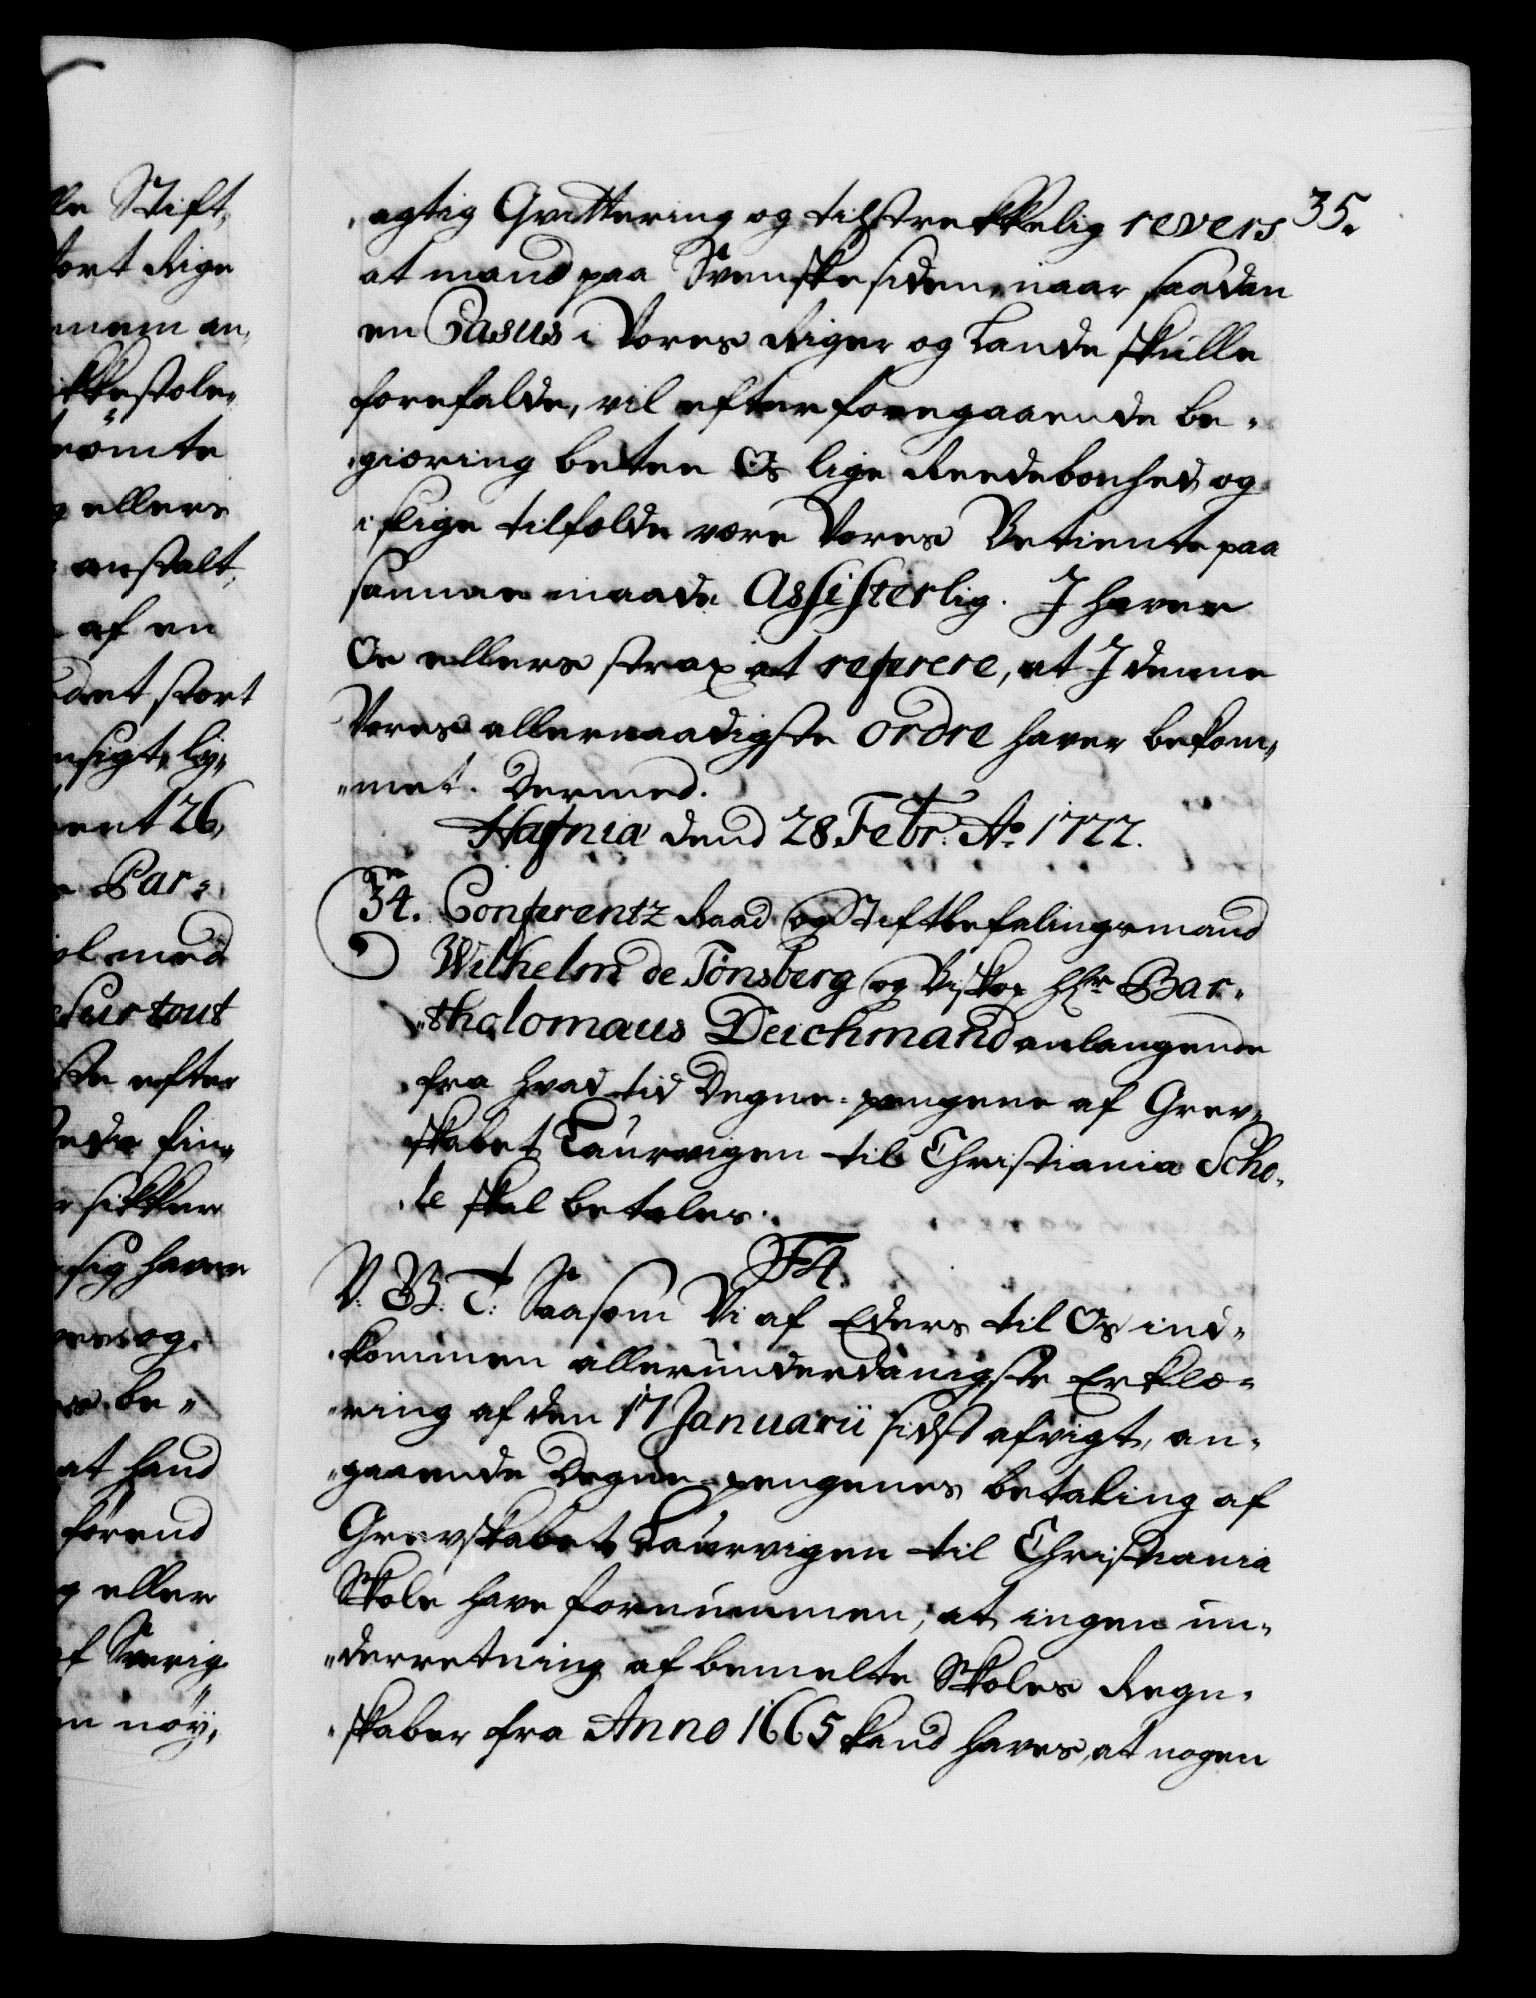 35.
agtig Qvittering og tilstrekkelig revers
at mand paa Svenske siden, naar saadan
en Casus i Vores Riger og Lande skulle
forefalde, vil efter foregaaende be-
giæring betee Os lige Reedebonhed og
i slige tilfælde være Vores Betiente paa
samme maade Assisterlig. I haver
Os ellers strax at referere, at I denne
Vores allernaadigste ordre haver bekom-
met. Dermed.
Hafnia dend 28 Febr: Ao 1722.
34. Conferentz Raad og Stiftbefalingsmand
Wilhelm de Tonsberg og Biskop Hr Bar-
tholomæus Deichmand anlangende
fra hvad tid Degne-pengene af Grev-
skabet Laurvigen til Christiania Scho-
le skal betales.
F4.
V. B. T: Saasom Vi af Eders til Os ind-
kommen allerunderdanigste Erklæ-
ring af den 17 Januarii sidst afvigt, an-
gaaende Degne-pengenes betaling af
Grevskabet Laurvigen til Christiania
Skole have fornummen, at ingen un-
derretning af bemelte Skoles Regn-
skaber fra Anno 1665 kand haves, at nogen
Stift,
Vort Rige
an,
ellers
anstalt,
af en
stort
26,
Par-
med
Surtout
efter
fin-
sikker
sig haver
og
be-
at hand
førend
eller
af Sverig